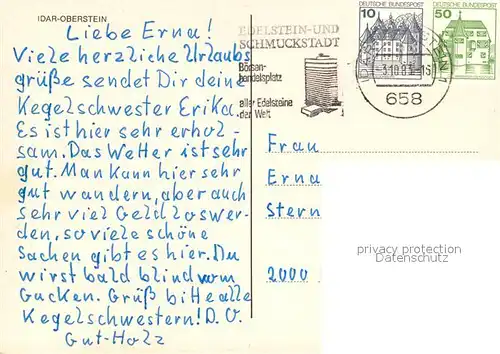 IDAR-OBERSTEIN
Liebe Erna!
Viele herzliche Urlaubs
grüße sendet Dir deine
Kegelschwester Erika.
Es ist hier sehr erhol-
sam. Das Wetter ist sehr
gut. Man kann hier sehr
gut wandern, aber auch
sehr viel Geld loswer-
den, so viele schöne
Sachen gibt es hier. Du
wirst bald blind vom
Gucken. Grüß bitte alle
Kegelschwestern! D. O.
Gut-Holz
EDELSTEIN-UND
SCHMUCKSTADT
Börsen-
handelsplatz
aller Edelsteine
der Welt
658
10
50
Frau
Erna
Stern
2000
privacy protection
Datenschutz